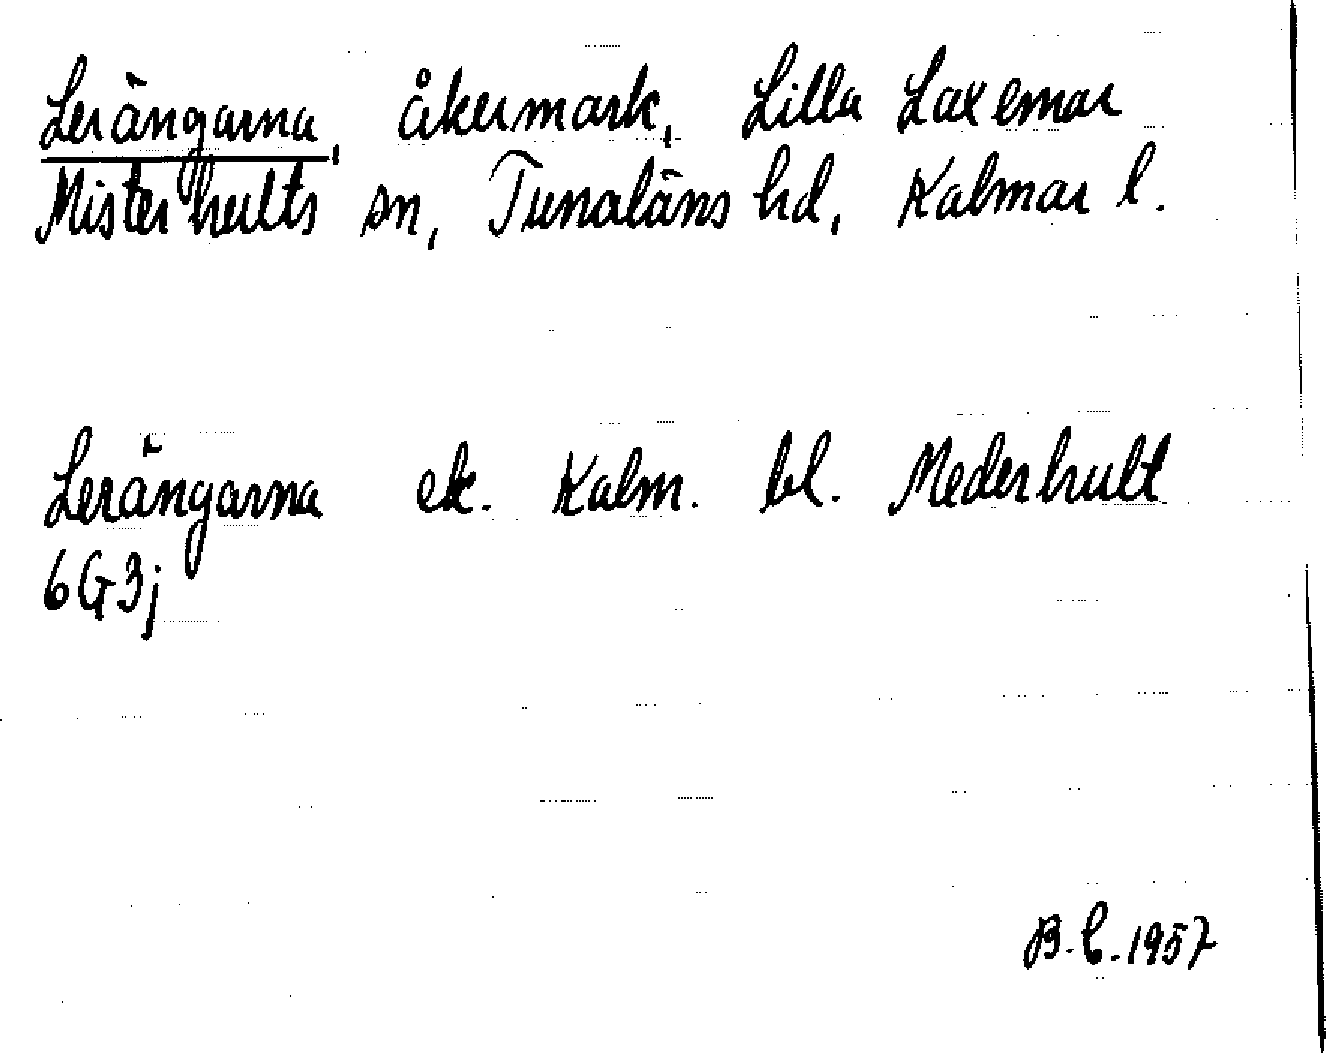 Lerängarna, åkermark, Lilla Laxemar
Misterhults sn, Tunaläns hd, Kalmar l.
Lerängarna ek. Kalm. bl. Mederhult
6G3j
B.C.1957